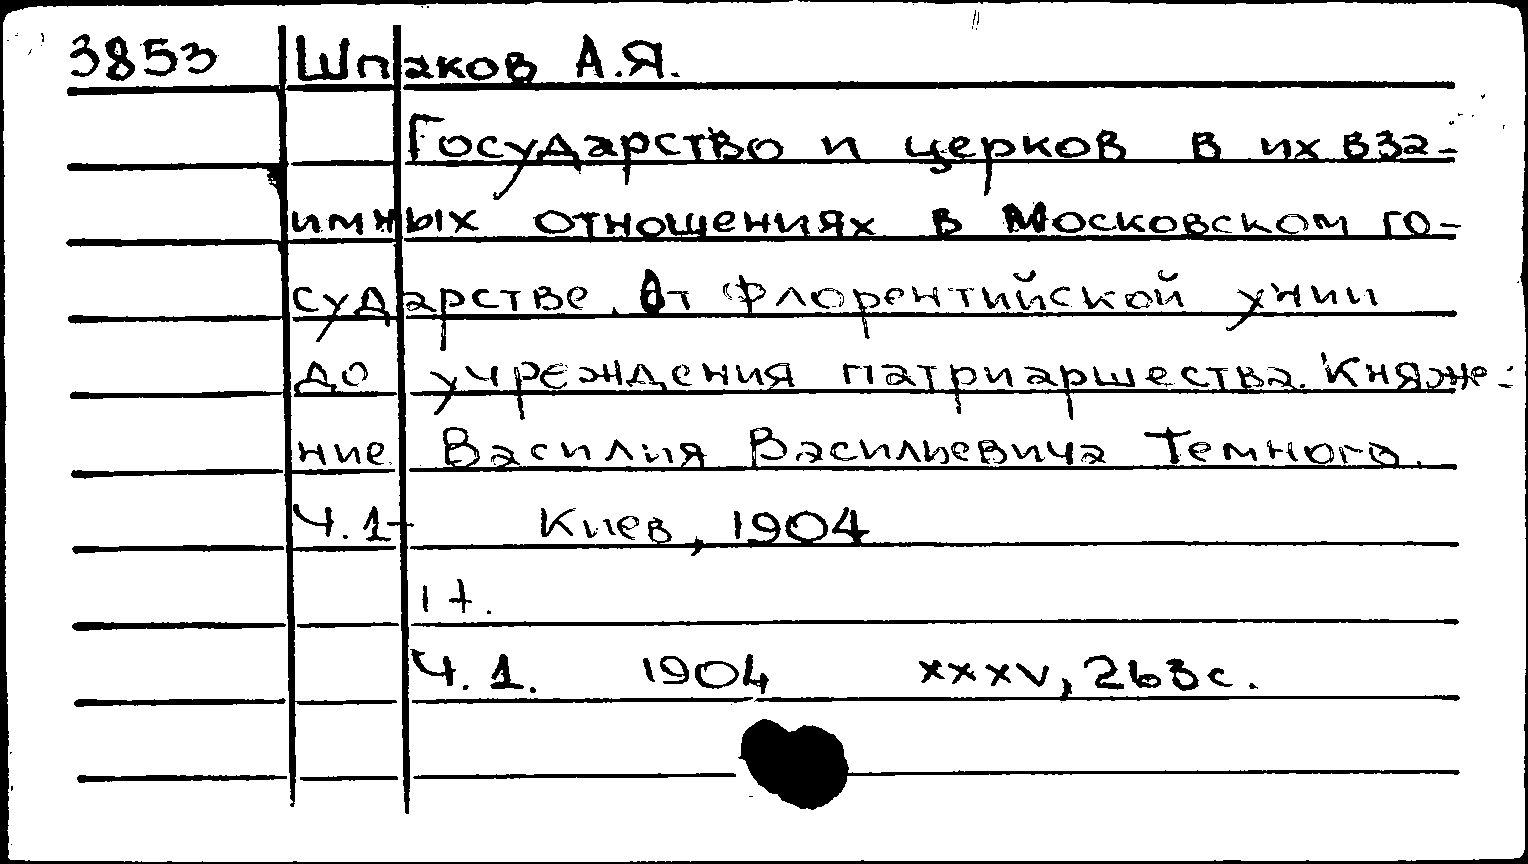 3853 Шпаков А.Я.
Государство и церков в их вза-
имных отношениях в Московском го-
сударстве. От Флорентийской унии
до учреждения патриаршества. Княже-
ние Василия Васильевича Темного.
Ч.1- Киев, 1904
1 т.
Ч.1. 1904 XXXV, 263с.